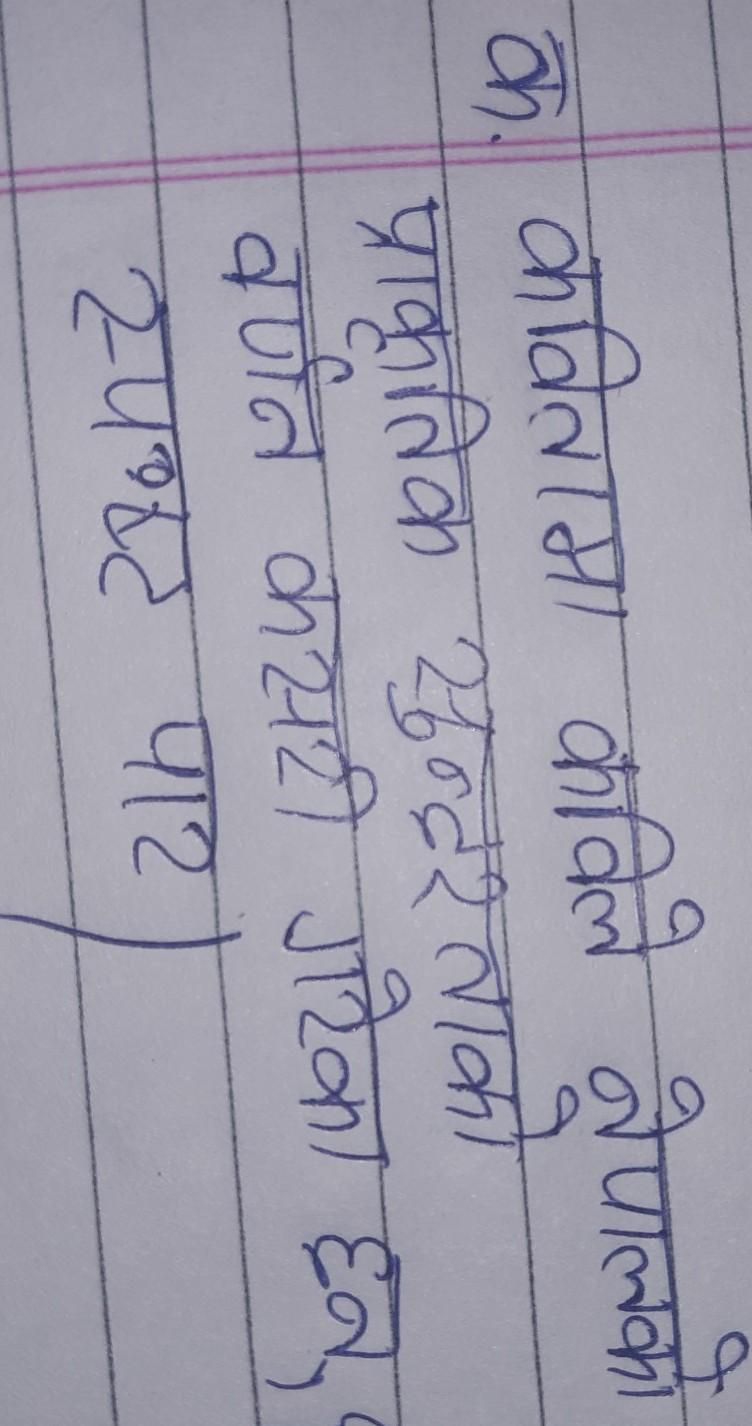 क. कवितामा कविले नेपालको
प्राकृतिक सुन्दरताको
वर्णन कसरी गरेका छन्,
स्पष्ट पार